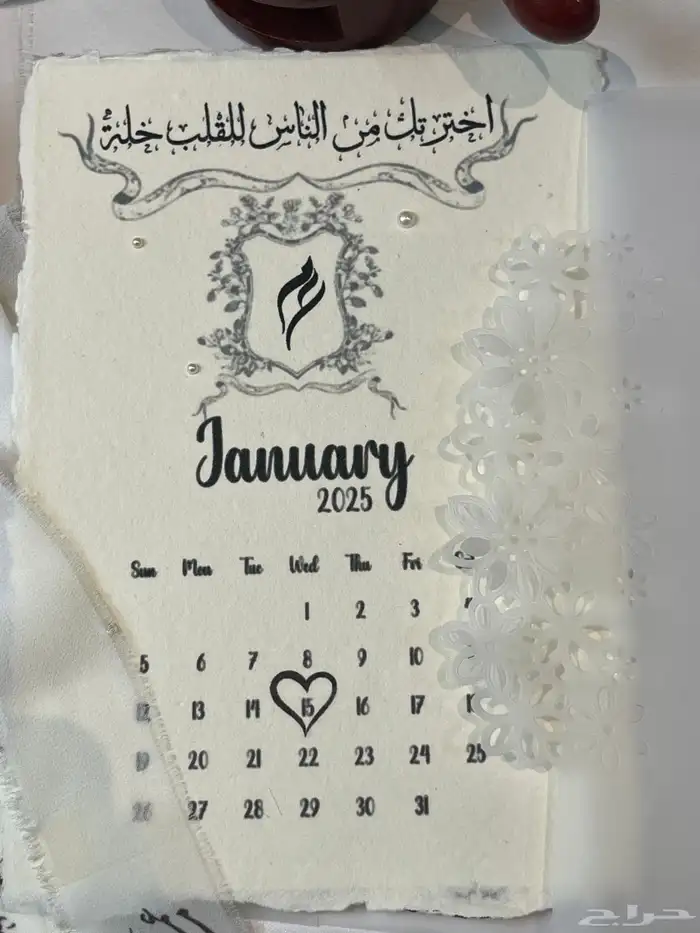 اخترتك من الناس للقلب خلة
January
2025
Sun Mon Tue Wed Thu Fri
1 2 3
5 6 7 8 9 10
12 13 14 15 16 17
19 20 21 22 23 24 25
26 27 28 29 30 31
حراج